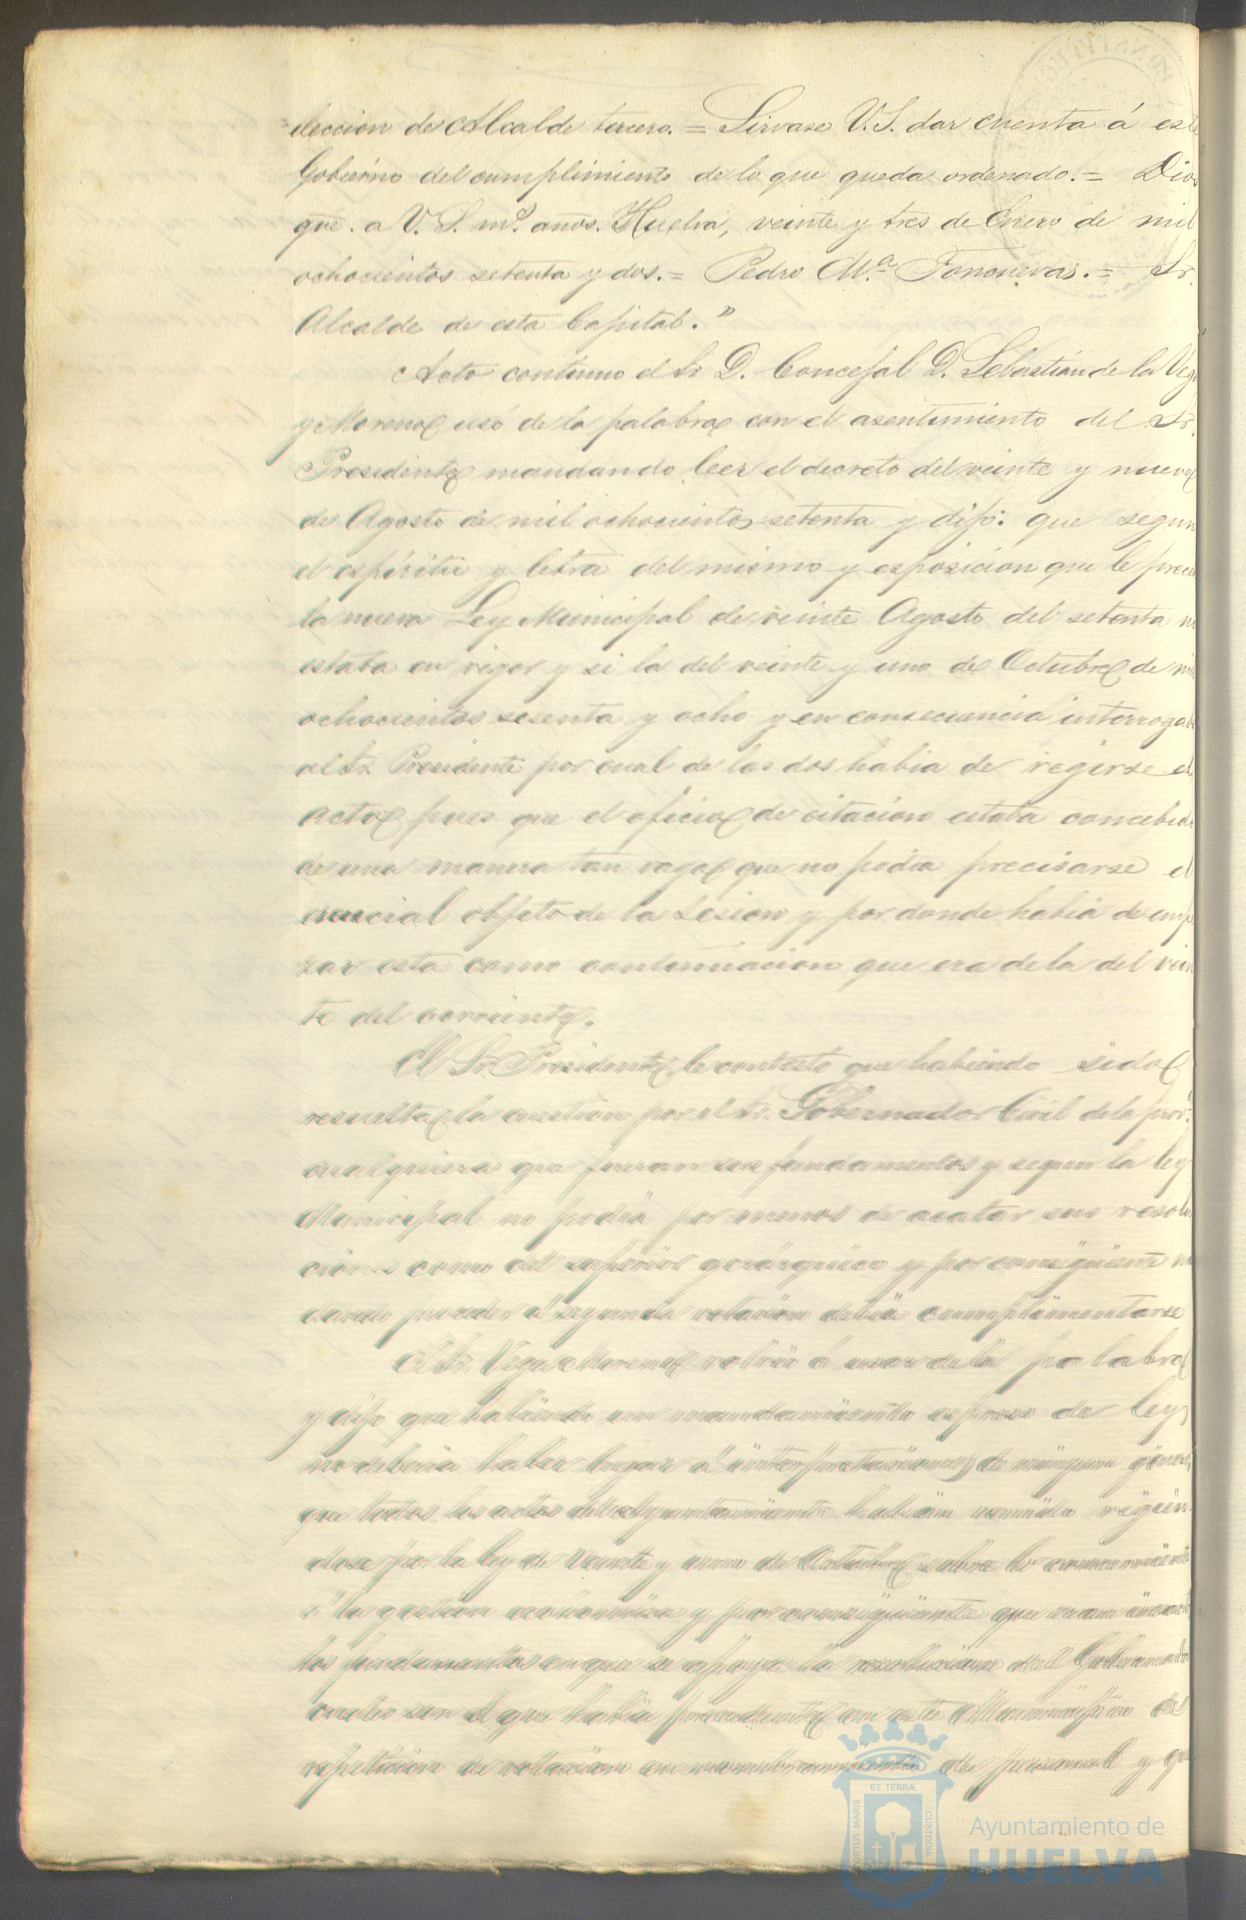 eleccion de Alcalde tercero. = Sirvase V.S. dar cuenta á este
Gobierno del cumplimiento de lo que queda ordenado. = Dios
gue. a V. S. ms. años. Huelva, veinte y tres de Enero de mil
ochocientos setenta y dos. = Pedro Ma. = Sr.
Alcalde de esta Capital."
Acto continuo el Sr D. Concejal D. Sebastián de la Vega
y Moreno usó de la palabra con el asentimiento del Sr.
Presidente mandando leer el decreto del veinte y nueve
de Agosto de mil ochocientos setenta y dijo: que segun
el espíritu y letra del mismo y esposicion que le prece
la nueva Ley Municipal de veinte Agosto del setenta no
estaba en vigor y si la del veinte y uno de Octubre de mil
ochocientos sesenta y ocho y en consecuencia interrogaba
al Sr. Presidente por cual de las dos habia de regirse el
acto, pues que el oficio de citacion estaba concebido
de una manera tan vaga que no podia precisarse el
esencial objeto de la sesion y por donde habia de empe
zar esta como continuacion que era de la del vein
te del corriente.
El Sr. Presidente le contestó que habiendo sido
resuelta la cuestion por el Sr. Gobernador Civil de la prov.
cualquiera que fueran sus fundamentos y segun la ley
Municipal no podia por menos de acatar sus resolu
ciones como del superior gerárquico y por consiguiente
proceder á segunda votacion debia cumplimentarse
El Sr. Vega Moreno volvió á usar de la palabra
y dijo que habiendo un mandamiento espreso de ley
no deberia haber lugar á interpretaciones de ningun género;
que todos los actos del Ayuntamiento habian venido rigien
dose por la ley de veinte y uno de Octubre sobre lo concerniente
á la gestion económica y por consiguiente que eran
los fundamentos en que se apoya la resolucion del Gobernador
cuales son el que habia precedente en este Municipio de
repeticion de votacion en nombramiento de personal y que
CONSTITUC
PORTUS MARIS
ET TERRÆ
CUSTODIA
Ayuntamiento de
HUELVA